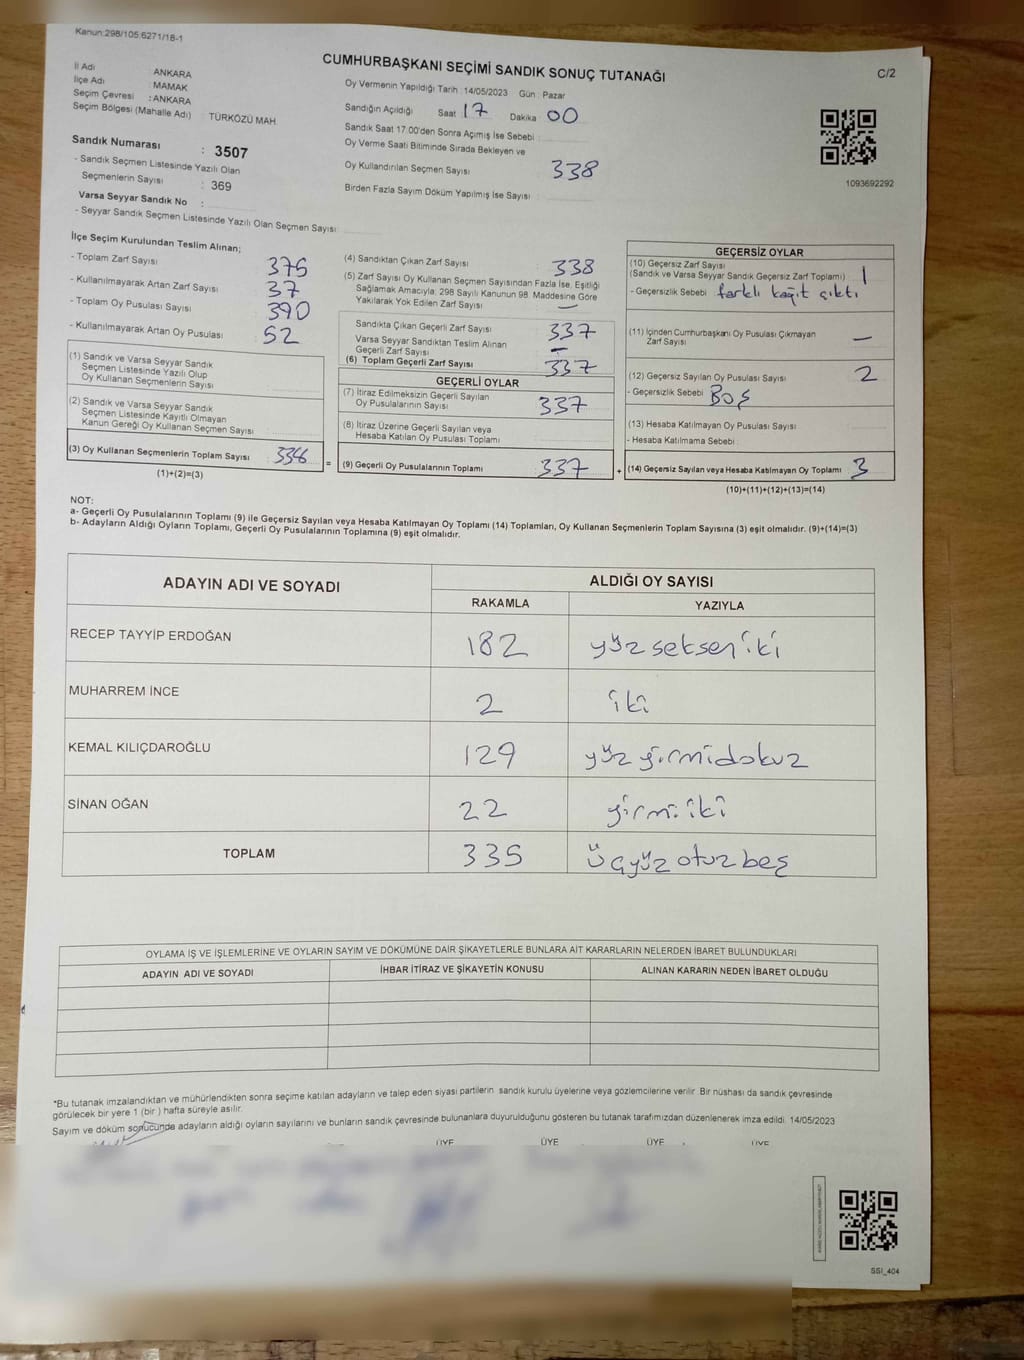 Kanun:298/105.6271/18-1
CUMHURBAŞKANI SEÇİMİ SANDIK SONUÇ TUTANAĞI
C/2
İl Adı : ANKARA
İlçe Adı : MAMAK
Seçim Çevresi : ANKARA
Seçim Bölgesi (Mahalle Adı) : TÜRKÖZÜ MAH.
Oy Vermenin Yapıldığı Tarih :14/05/2023 Gün : Pazar
Sandığın Açıldığı Saat 17 Dakika 00
Sandık Saat 17.00'den Sonra Açımış İse Sebebi :
Oy Verme Saati Bitiminde Sırada Bekleyen ve
Oy Kullandırılan Seçmen Sayısı 338
Birden Fazla Sayım Döküm Yapılmış İse Sayısı :
1093692292
Sandık Numarası : 3507
- Sandık Seçmen Listesinde Yazılı Olan
Seçmenlerin Sayısı : 369
Varsa Seyyar Sandık No :
- Seyyar Sandık Seçmen Listesinde Yazılı Olan Seçmen Sayısı
İlçe Seçim Kurulundan Teslim Alınan;
- Toplam Zarf Sayısı 375
- Kullanılmayarak Artan Zarf Sayısı 37
- Toplam Oy Pusulası Sayısı 390
- Kullanılmayarak Artan Oy Pusulası 52
(1) Sandık ve Varsa Seyyar Sandık
Seçmen Listesinde Yazılı Olup
Oy Kullanan Seçmenlerin Sayısı
(2) Sandık ve Varsa Seyyar Sandık
Seçmen Listesinde Kayıtlı Olmayan
Kanun Gereği Oy Kullanan Seçmen Sayısı
(3) Oy Kullanan Seçmenlerin Toplam Sayısı
(1)+(2)=(3)
=
(4) Sandıktan Çıkan Zarf Sayısı 338
(5) Zarf Sayısı Oy Kullanan Seçmen Sayısından Fazla İse, Eşitliği
Sağlamak Amacıyla, 298 Sayılı Kanunun 98. Maddesine Göre
Yakılarak Yok Edilen Zarf Sayısı —
Sandıkta Çıkan Geçerli Zarf Sayısı 337
Varsa Seyyar Sandıktan Teslim Alınan
Geçerli Zarf Sayısı —
(6) Toplam Geçerli Zarf Sayısı 337
GEÇERLİ OYLAR
(7) İtiraz Edilmeksizin Geçerli Sayılan
Oy Pusulalarının Sayısı 337
(8) İtiraz Üzerine Geçerli Sayılan veya
Hesaba Katılan Oy Pusulası Toplamı
(9) Geçerli Oy Pusulalarının Toplamı 337
+
GEÇERSİZ OYLAR
(10) Geçersiz Zarf Sayısı
(Sandık ve Varsa Seyyar Sandık Geçersiz Zarf Toplamı) 1
- Geçersizlik Sebebi farklı kağıt çıktı
(11) İçinden Cumhurbaşkanı Oy Pusulası Çıkmayan
Zarf Sayısı —
(12) Geçersiz Sayılan Oy Pusulası Sayısı 2
- Geçersizlik Sebebi Boş
(13) Hesaba Katılmayan Oy Pusulası Sayısı
- Hesaba Katılmama Sebebi :
(14) Geçersiz Sayılan veya Hesaba Katılmayan Oy Toplamı 3
(10)+(11)+(12)+(13)=(14)
NOT:
a- Geçerli Oy Pusulalarının Toplamı (9) ile Geçersiz Sayılan veya Hesaba Katılmayan Oy Toplamı (14) Toplamları, Oy Kullanan Seçmenlerin Toplam Sayısına (3) eşit olmalıdır. (9)+(14)=(3)
b- Adayların Aldığı Oyların Toplamı, Geçerli Oy Pusulalarının Toplamına (9) eşit olmalıdır.
ADAYIN ADI VE SOYADI ALDIĞI OY SAYISI
RAKAMLA YAZIYLA
RECEP TAYYİP ERDOĞAN 182 yüz seksen iki
MUHARREM İNCE 2 iki
KEMAL KILIÇDAROĞLU 129 yüz yirmidokuz
SİNAN OĞAN 22 yirmi iki
TOPLAM 335 üçyüz otuz beş
OYLAMA İŞ VE İŞLEMLERİNE VE OYLARIN SAYIM VE DÖKÜMÜNE DAİR ŞİKAYETLERLE BUNLARA AİT KARARLARIN NELERDEN İBARET BULUNDUKLARI
ADAYIN ADI VE SOYADI İHBAR İTİRAZ VE ŞİKAYETİN KONUSU ALINAN KARARIN NEDEN İBARET OLDUĞU
*Bu tutanak imzalandıktan ve mühürlendikten sonra seçime katılan adayların ve talep eden siyasi partilerin sandık kurulu üyelerine veya gözlemcilerine verilir. Bir nüshası da sandık çevresinde
görülecek bir yere 1 (bir ) hafta süreyle asılır.
Sayım ve döküm sonucunda adayların aldığı oyların sayılarını ve bunların sandık çevresinde bulunanlara duyurulduğunu gösteren bu tutanak tarafımızdan düzenlenerek imza edildi. 14/05/2023
ÜYE ÜYE ÜYE ÜYE
SSI_404